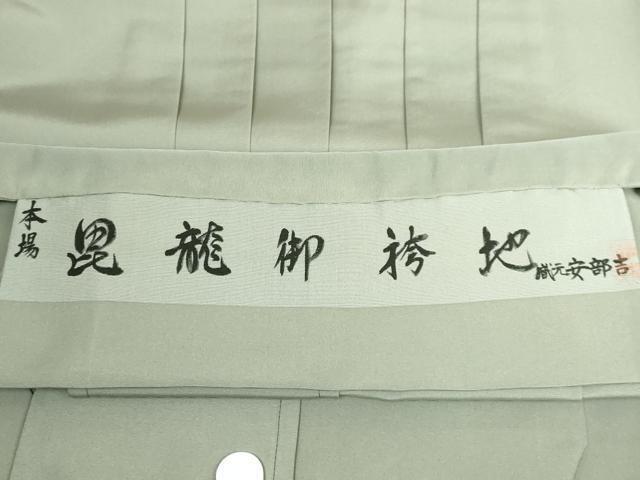 本場
毘龍御袴地
織元安部吉